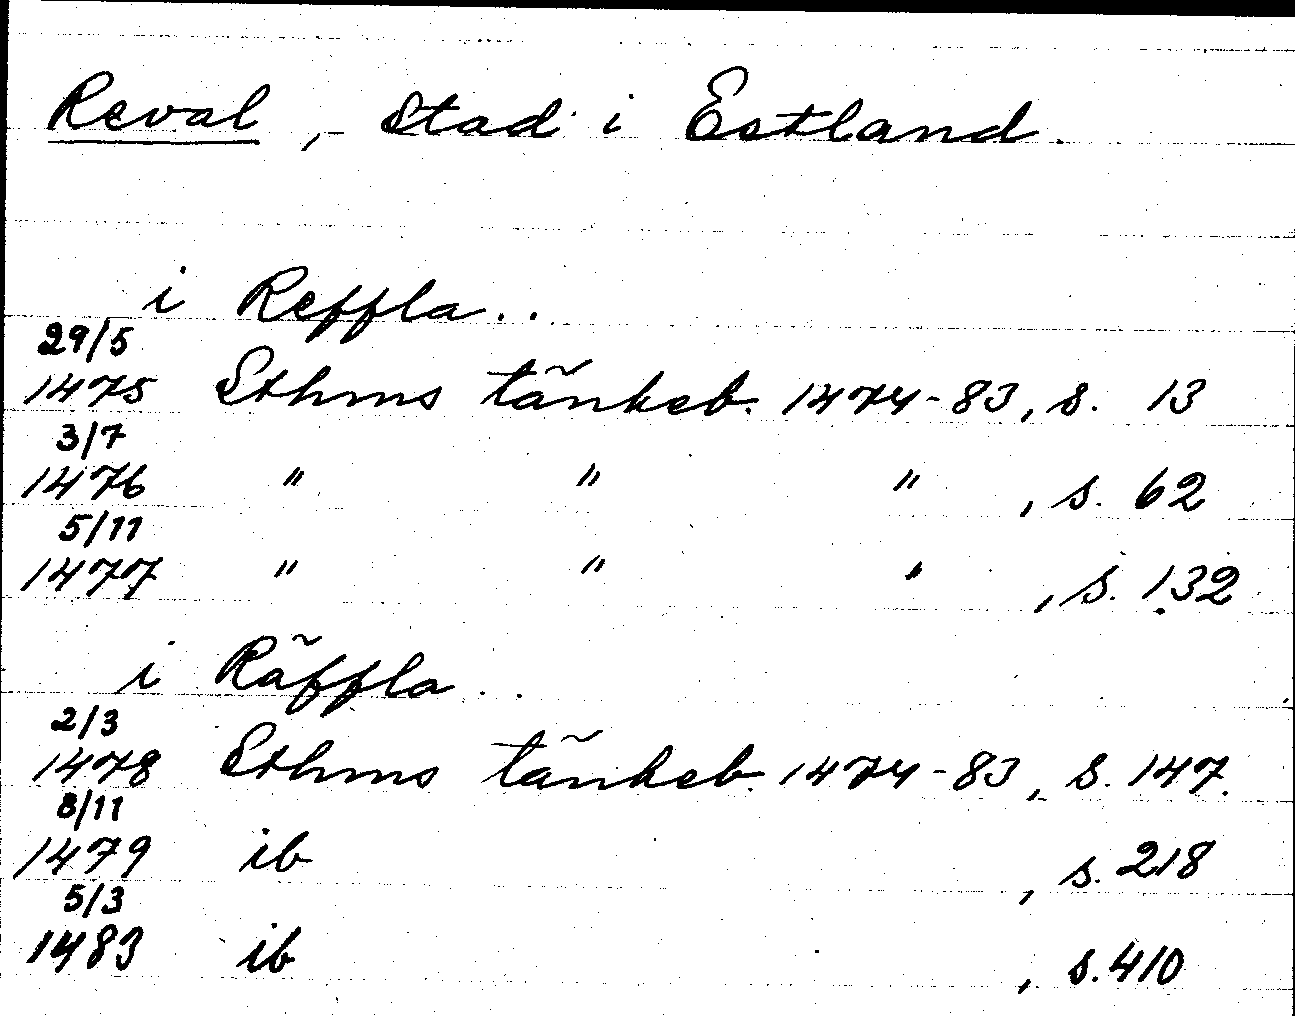 Reval, stad i Estland.
i Reffla..
29/5
1475 Sthms tänkeb. 1474-83, s. 13
3/7
1476 " " " , s. 62
5/11
1477 " " " , s. 132
i Räffla..
2/3
1478 Sthms tänkeb. 1474-83, s. 147.
8/11
1479 ib , s. 218
5/3
1483 ib , s. 410